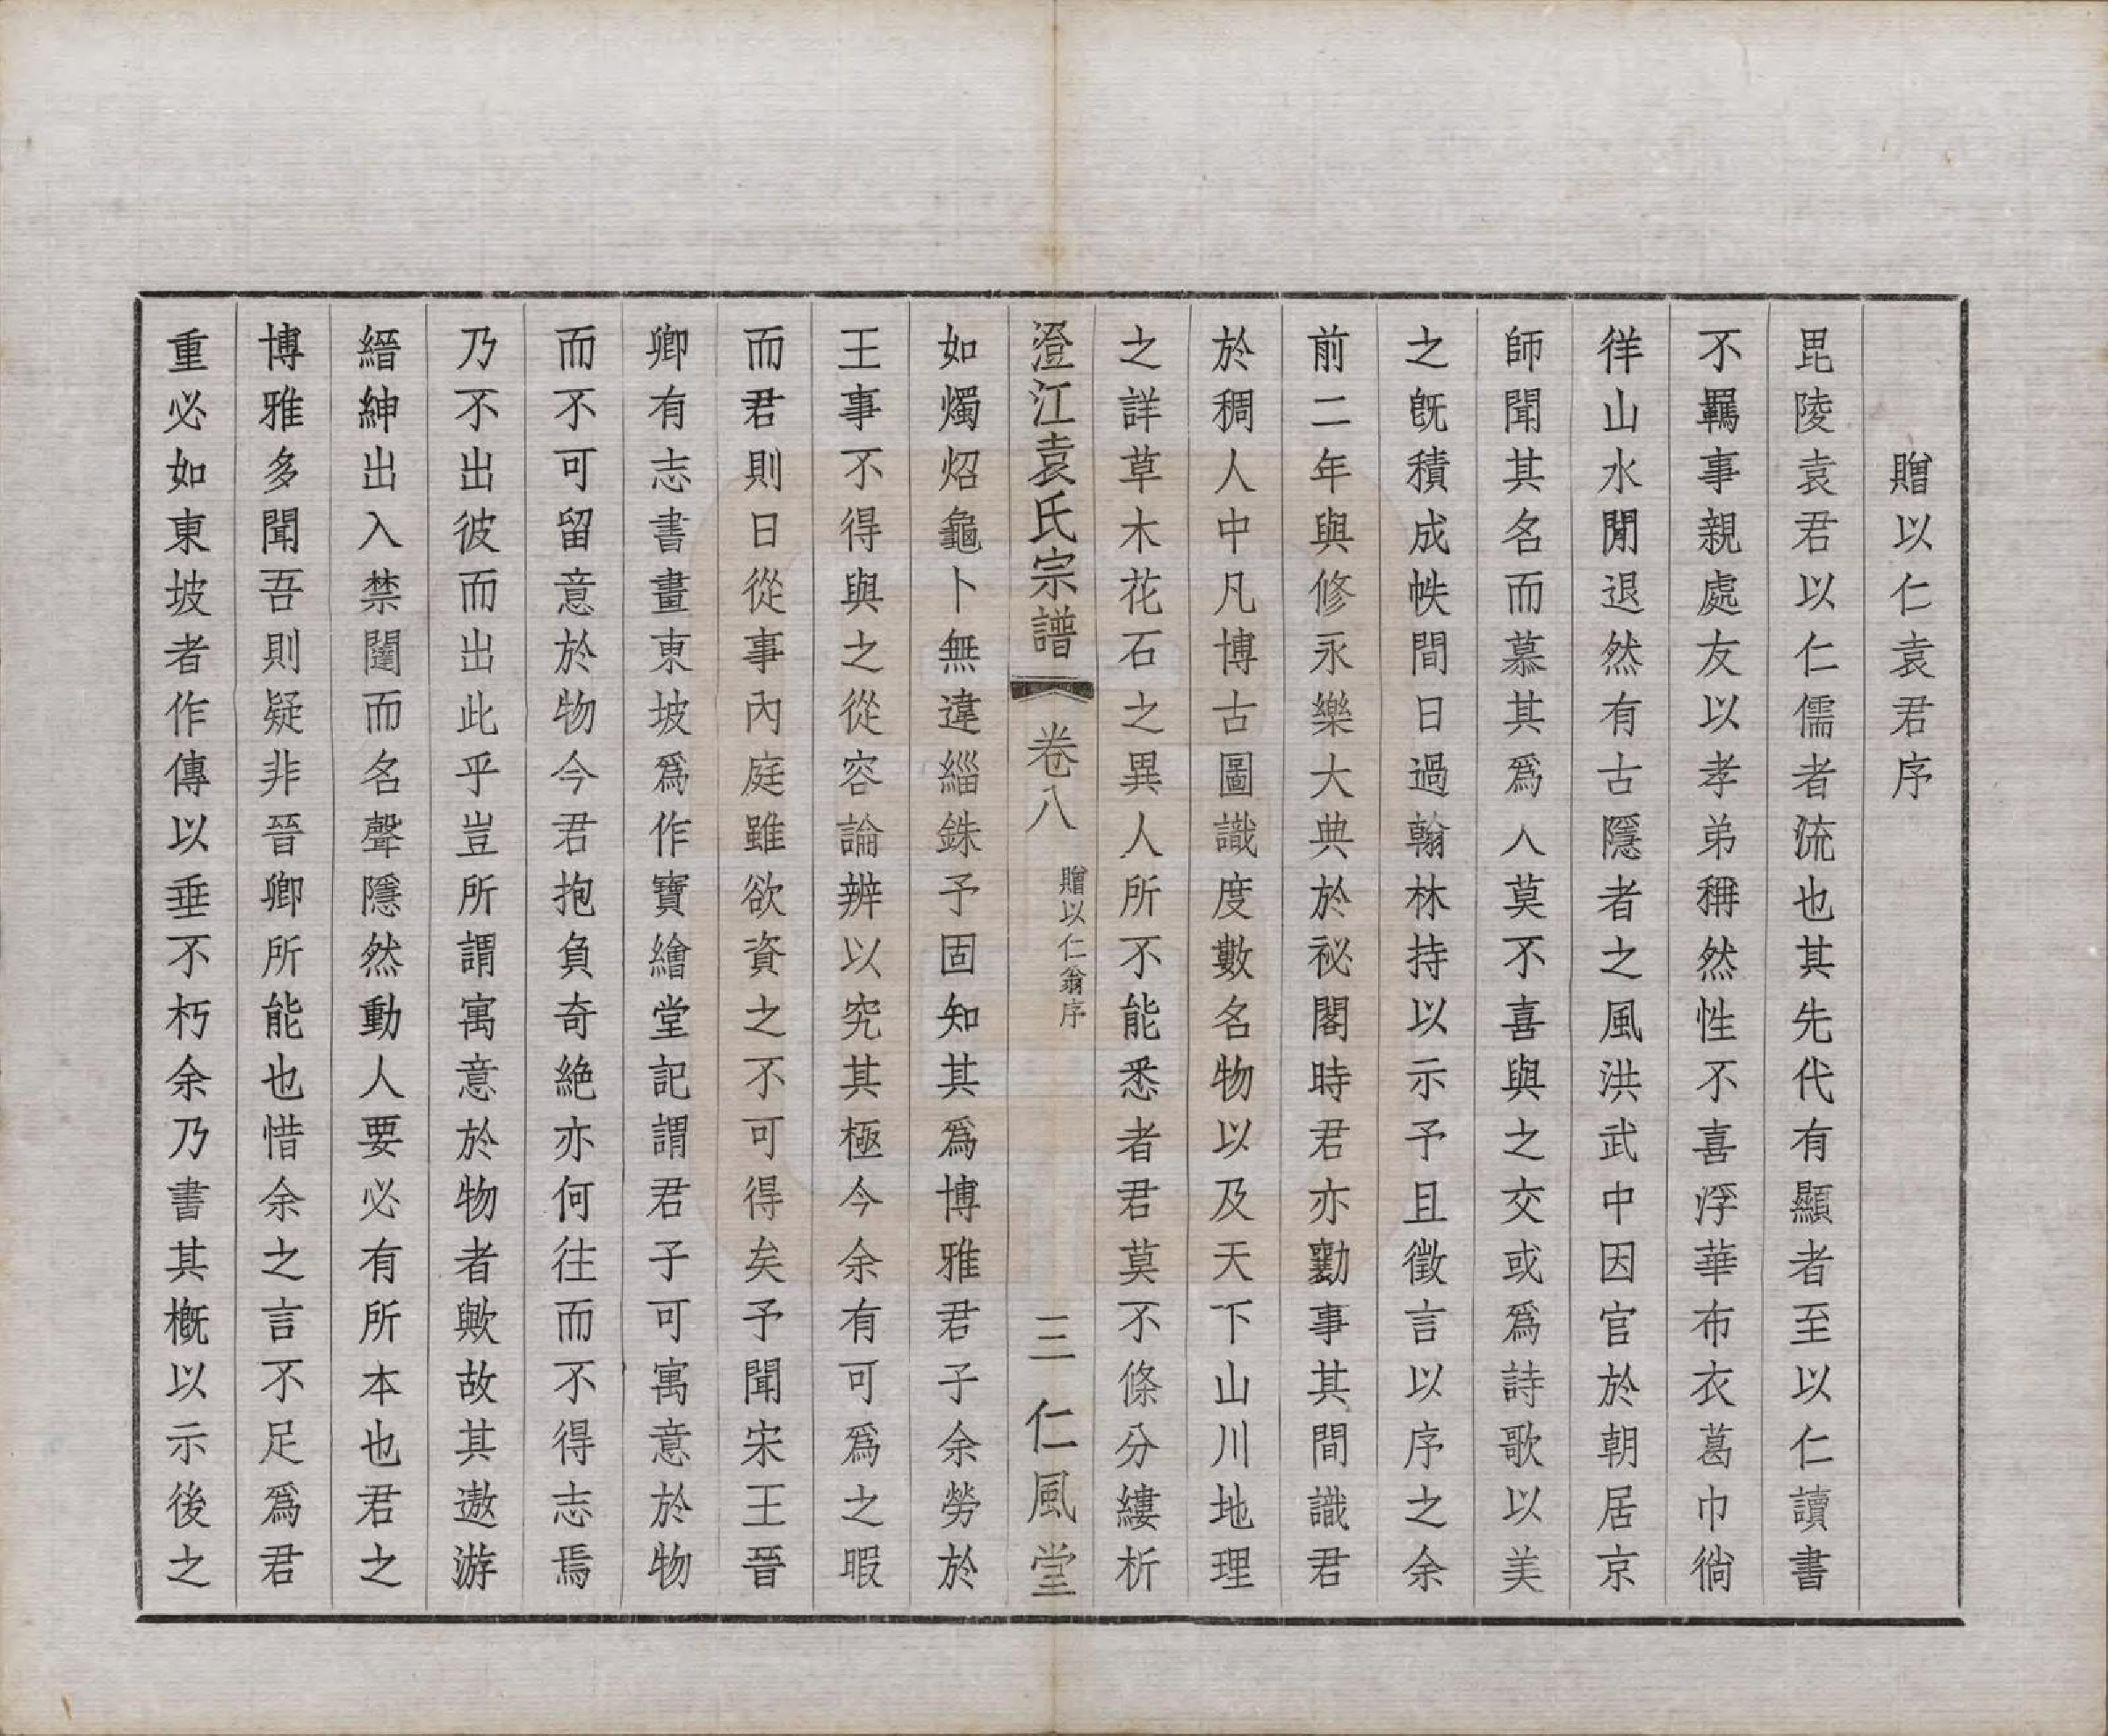 贈以仁袁君序
毘陵袁君以仁儒者流也其先代有顯者至以仁讀書
不羈事親處友以孝弟稱然性不喜浮華布衣葛巾徜
徉山水閒退然有古隱者之風洪武中因官於朝居京
師聞其名而慕其爲人莫不喜與之交或爲詩歌以美
之旣積成帙間日過翰林持以示予且徵言以序之余
前二年與修永樂大典於祕閣時君亦勷事其間識君
於稠人中凡博古圖識度數名物以及天下山川地理
之詳草木花石之異人所不能悉者君莫不條分縷析
澄江袁氏宗譜 卷八 贈以仁翁序 三 仁風堂
如燭炤龜卜無違緇銖予固知其爲博雅君子余勞於
王事不得與之從容論辨以究其極今余有可爲之暇
而君則日從事內庭雖欲資之不可得矣予聞宋王晉
卿有志書畫東坡爲作寶繪堂記謂君子可寓意於物
而不可留意於物今君抱負奇絶亦何往而不得志焉
乃不出彼而出此乎豈所謂寓意於物者歟故其遨游
縉紳出入禁闥而名聲隱然動人要必有所本也君之
博雅多聞吾則疑非晉卿所能也惜余之言不足爲君
重必如東坡者作傳以垂不朽余乃書其概以示後之